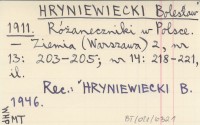 HRYNIEWIECKI Bolesław
1911. Różaneczniki w Polsce.
— Ziemia (Warszawa) 2, nr
13: 203-205; nr 14: 218-221,
il.
Rec.: "HRYNIEWIECKI B.
1946.
MT